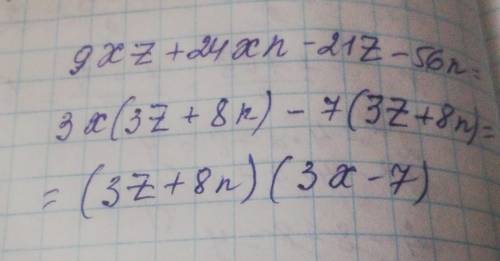 9xz+24xn-21z-56n=
3x(3z+8n)-7(3z+8n)=
=(3z+8n)(3x-7)